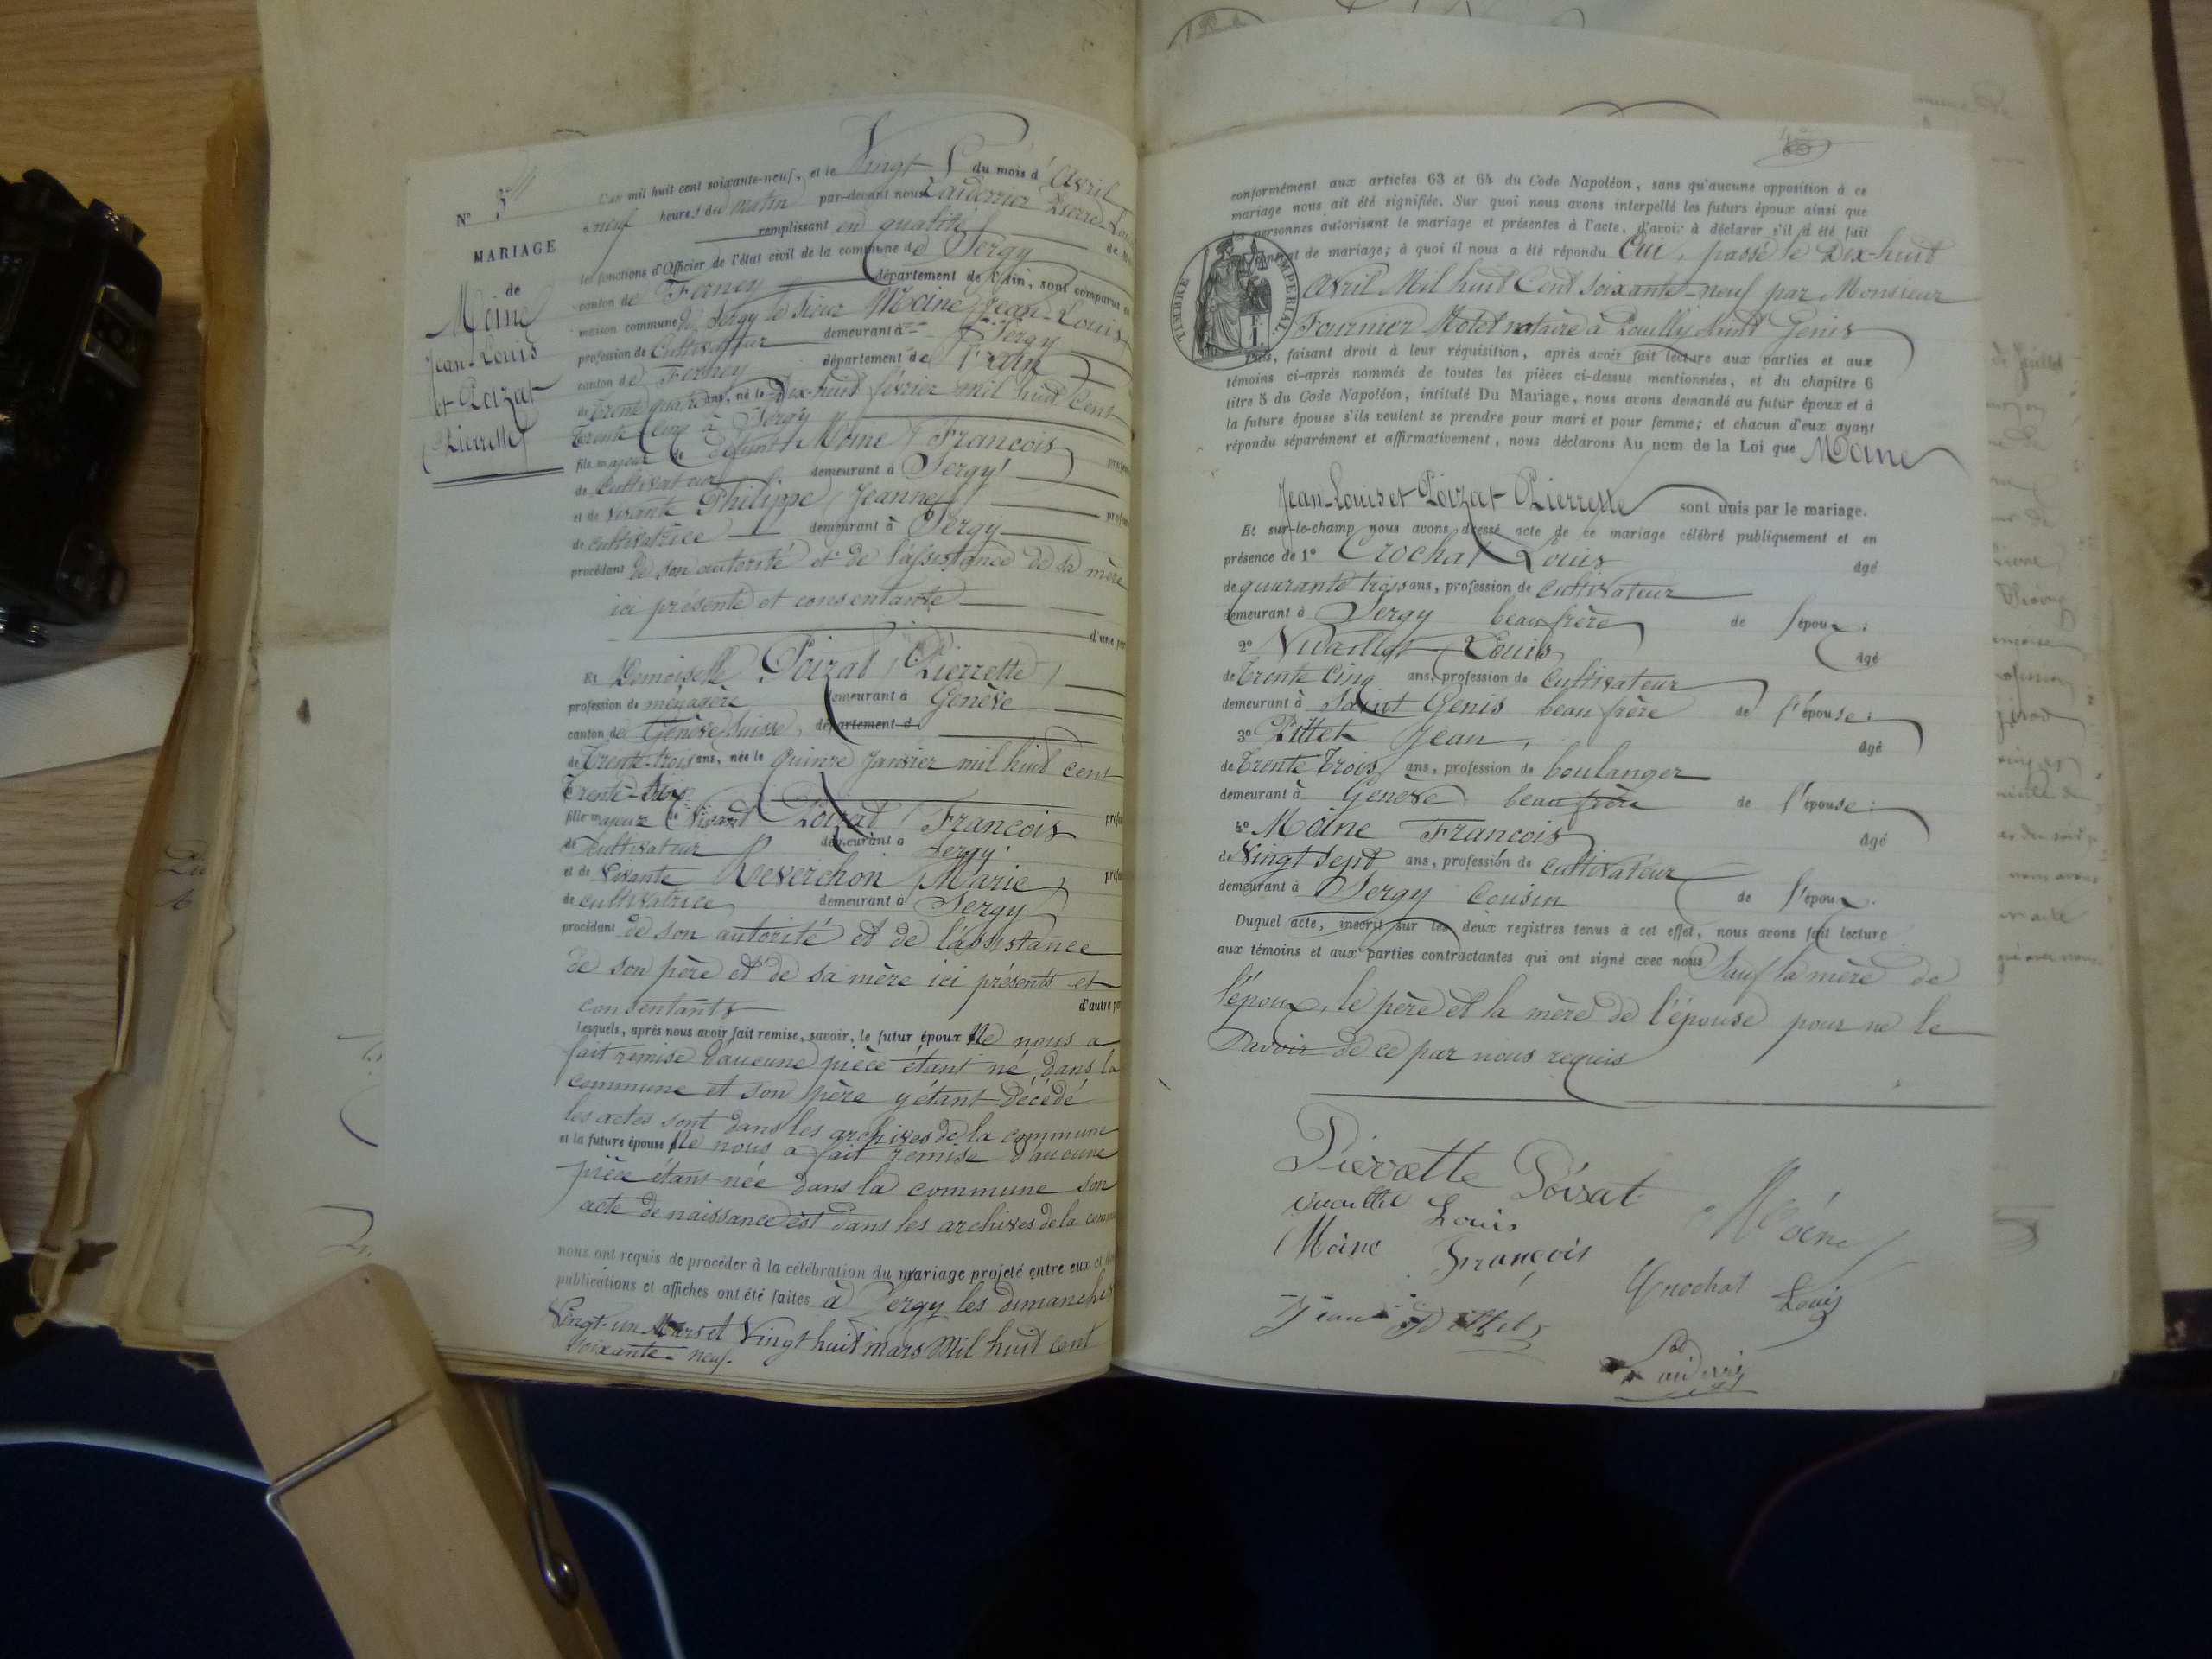 Nº 3
MARIAGE
de
Moine
Jean-Louis
et Poizat
Pierrette
L'an mil huit cent soixante-neuf, et le Vingt du mois d'Avril
à neuf heures du matin par-devant nous Pierre-Louis
remplissant en qualité de
les fonctions d'Officier de l'état civil de la commune de Sergy
canton de Ferney département de l'Ain, sont comparus en
maison commune de Sergy le sieur Moine Jean-Louis
profession de Cultivateur demeurant à Sergy
canton de Ferney département de l'Ain
de Trente quatre ans, né le Dix-huit février mil huit Cent
Trente Cinq à Sergy
fils majeur de défunt Moine François
de Cultivateur demeurant à Sergy
et de vivante Philippe Jeanne
de cultivatrice demeurant à Sergy
procédant de son autorité et de l'assistance de sa mère
ici présente et consentante
d'une part
Et Demoiselle Poizat Pierrette
profession de ménagère demeurant à Genève
canton de Genève Suisse, département d
de Trente-trois ans, née le Quinze Janvier mil huit cent
Trente-Six
fille majeure de Vivant Poizat François
de Cultivateur demeurant à Sergy
et de Vivante Reverchon Marie
de cultivatrice demeurant à Sergy
procédant de son autorité et de l'assistance
de son père et de sa mère ici présents et
consentants d'autre part
Lesquels, après nous avoir fait remise, savoir, le futur époux Ne nous a
fait remise d'aucune pièce étant né dans la
commune et son père y étant décédé
les actes sont dans les archives de la commune
et la future épouse Ne nous a fait remise d'aucune
pièce étant née dans la commune son
acte de naissance est dans les archives de la commune
nous ont requis de procéder à la célébration du mariage projeté entre eux et dont
publications et affiches ont été faites à Sergy les dimanches
Vingt-un Mars et Vingt huit mars Mil huit cent
Soixante-neuf.
conformément aux articles 63 et 64 du Code Napoléon, sans qu'aucune opposition à ce
mariage nous ait été signifiée. Sur quoi nous avons interpellé les futurs époux ainsi que
les personnes autorisant le mariage et présentes à l'acte, d'avoir à déclarer s'il a été fait
contrat de mariage; à quoi il nous a été répondu Oui, passé le Dix-huit
Avril Mil huit Cent soixante-neuf par Monsieur
TIMBRE IMPERIAL.
Fournier Motet notaire à Pouilly Saint Genis
Puis, faisant droit à leur réquisition, après avoir fait lecture aux parties et aux
témoins ci-après nommés de toutes les pièces ci-dessus mentionnées, et du chapitre 6
titre 5 du Code Napoléon, intitulé Du Mariage, nous avons demandé au futur époux et à
la future épouse s'ils veulent se prendre pour mari et pour femme; et chacun d'eux ayant
répondu séparément et affirmativement, nous déclarons Au nom de la Loi que Moine
Jean-Louis et Poizat Pierrette sont unis par le mariage.
Et sur-le-champ nous avons dressé acte de ce mariage célébré publiquement et en
présence de 1º Crochat Louis âgé
de quarante trois ans, profession de cultivateur
demeurant à Sergy beau frère de l'époux;
2º Vuaillet Louis âgé
de Trente Cinq ans, profession de Cultivateur
demeurant à Saint Genis beau frère de l'épouse;
3º Pittet Jean, âgé
de Trente Trois ans, profession de boulanger
demeurant à Genève beau frère de l'épouse;
4º Moine François âgé
de Vingt sept ans, profession de cultivateur
demeurant à Sergy Cousin de l'époux.
Duquel acte, inscrit sur les deux registres tenus à cet effet, nous avons fait lecture
aux témoins et aux parties contractantes qui ont signé avec nous Sauf la mère de
l'époux, le père et la mère de l'épouse pour ne le
Savoir de ce par nous requis
Pierrette Poizat
Vuaillet Louis
Moine
Moine François
Crochat Louis
Jean Pittet